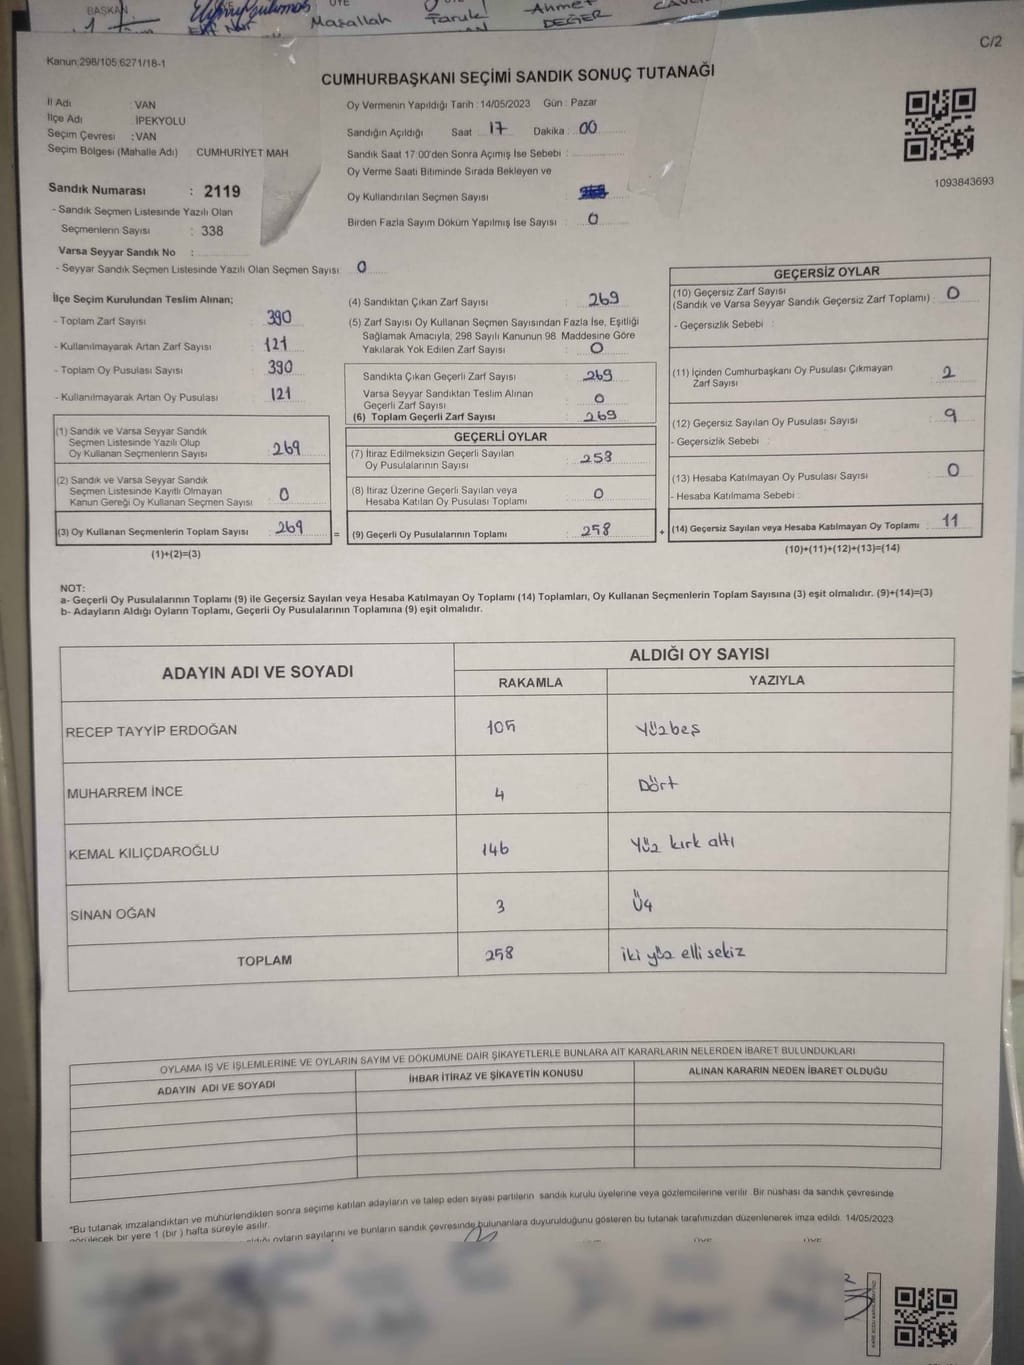 BAŞKAN
Maşallah
Faruk
Ahmet
DEĞER
C/2
Kanun;298/105;6271/18-1
CUMHURBAŞKANI SEÇİMİ SANDIK SONUÇ TUTANAĞI
İl Adı : VAN
İlçe Adı : İPEKYOLU
Seçim Çevresi : VAN
Seçim Bölgesi (Mahalle Adı) CUMHURİYET MAH
Sandık Numarası : 2119
- Sandık Seçmen Listesinde Yazılı Olan
Seçmenlerin Sayısı : 338
Varsa Seyyar Sandık No :
- Seyyar Sandık Seçmen Listesinde Yazılı Olan Seçmen Sayısı: 0
Oy Vermenin Yapıldığı Tarih : 14/05/2023 Gün : Pazar
Sandığın Açıldığı Saat : 17 Dakika : 00
Sandık Saat 17:00'den Sonra Açımış İse Sebebi :
Oy Verme Saati Bitiminde Sırada Bekleyen ve
Oy Kullandırılan Seçmen Sayısı :
Birden Fazla Sayım Döküm Yapılmış İse Sayısı : 0
1093843693
İlçe Seçim Kurulundan Teslim Alınan;
- Toplam Zarf Sayısı : 390
- Kullanılmayarak Artan Zarf Sayısı : 121
- Toplam Oy Pusulası Sayısı : 390
- Kullanılmayarak Artan Oy Pusulası : 121
(1) Sandık ve Varsa Seyyar Sandık
Seçmen Listesinde Yazılı Olup
Oy Kullanan Seçmenlerin Sayısı : 269
(2) Sandık ve Varsa Seyyar Sandık
Seçmen Listesinde Kayıtlı Olmayan
Kanun Gereği Oy Kullanan Seçmen Sayısı : 0
(3) Oy Kullanan Seçmenlerin Toplam Sayısı : 269
(1)+(2)=(3)
(4) Sandıktan Çıkan Zarf Sayısı : 269
(5) Zarf Sayısı Oy Kullanan Seçmen Sayısından Fazla İse, Eşitliği
Sağlamak Amacıyla; 298 Sayılı Kanunun 98. Maddesine Göre
Yakılarak Yok Edilen Zarf Sayısı : 0
Sandıkta Çıkan Geçerli Zarf Sayısı : 269
Varsa Seyyar Sandıktan Teslim Alınan
Geçerli Zarf Sayısı : 0
(6) Toplam Geçerli Zarf Sayısı : 269
GEÇERLİ OYLAR
(7) İtiraz Edilmeksizin Geçerli Sayılan
Oy Pusulalarının Sayısı : 258
(8) İtiraz Üzerine Geçerli Sayılan veya
Hesaba Katılan Oy Pusulası Toplamı : 0
= (9) Geçerli Oy Pusulalarının Toplamı : 258
GEÇERSİZ OYLAR
(10) Geçersiz Zarf Sayısı
(Sandık ve Varsa Seyyar Sandık Geçersiz Zarf Toplamı) : 0
- Geçersizlik Sebebi :
(11) İçinden Cumhurbaşkanı Oy Pusulası Çıkmayan
Zarf Sayısı : 2
(12) Geçersiz Sayılan Oy Pusulası Sayısı : 9
- Geçersizlik Sebebi :
(13) Hesaba Katılmayan Oy Pusulası Sayısı : 0
- Hesaba Katılmama Sebebi :
+ (14) Geçersiz Sayılan veya Hesaba Katılmayan Oy Toplamı : 11
(10)+(11)+(12)+(13)=(14)
NOT:
a- Geçerli Oy Pusulalarının Toplamı (9) ile Geçersiz Sayılan veya Hesaba Katılmayan Oy Toplamı (14) Toplamları, Oy Kullanan Seçmenlerin Toplam Sayısına (3) eşit olmalıdır. (9)+(14)=(3)
b- Adayların Aldığı Oyların Toplamı, Geçerli Oy Pusulalarının Toplamına (9) eşit olmalıdır.
ADAYIN ADI VE SOYADI
ALDIĞI OY SAYISI
RAKAMLA YAZIYLA
RECEP TAYYİP ERDOĞAN 105 Yüzbeş
MUHARREM İNCE 4 Dört
KEMAL KILIÇDAROĞLU 146 Yüz kırk altı
SİNAN OĞAN 3 Üç
TOPLAM 258 iki yüz elli sekiz
OYLAMA İŞ VE İŞLEMLERİNE VE OYLARIN SAYIM VE DÖKÜMÜNE DAİR ŞİKAYETLERLE BUNLARA AİT KARARLARIN NELERDEN İBARET BULUNDUKLARI
ADAYIN ADI VE SOYADI İHBAR İTİRAZ VE ŞİKAYETİN KONUSU ALINAN KARARIN NEDEN İBARET OLDUĞU
*Bu tutanak imzalandıktan ve mühürlendikten sonra seçime katılan adayların ve talep eden siyasi partilerin sandık kurulu üyelerine veya gözlemcilerine verilir. Bir nüshası da sandık çevresinde
görülecek bir yere 1 (bir) hafta süreyle asılır.
oyların sayılarını ve bunların sandık çevresinde bulunanlara duyurulduğunu gösteren bu tutanak tarafımızdan düzenlenerek imza edildi. 14/05/2023